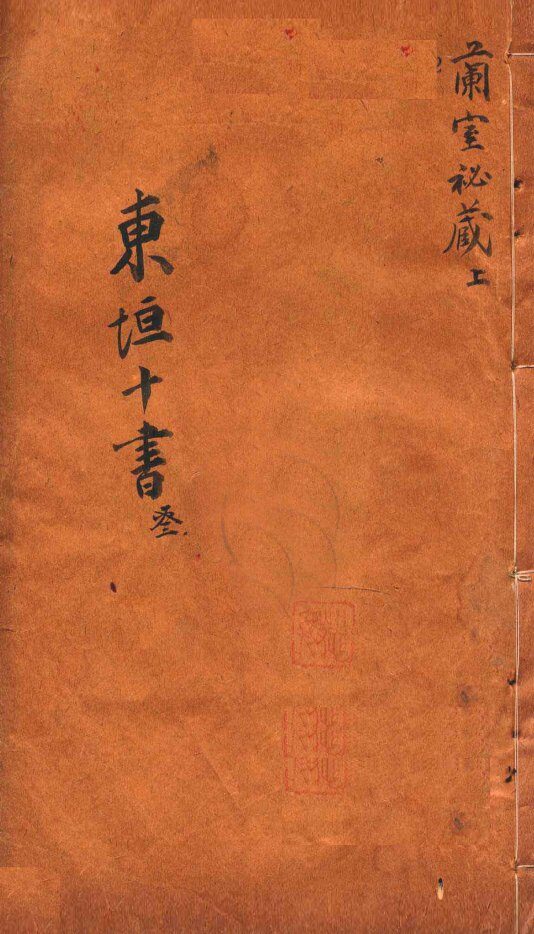 蘭室祕蔵上
東垣十書